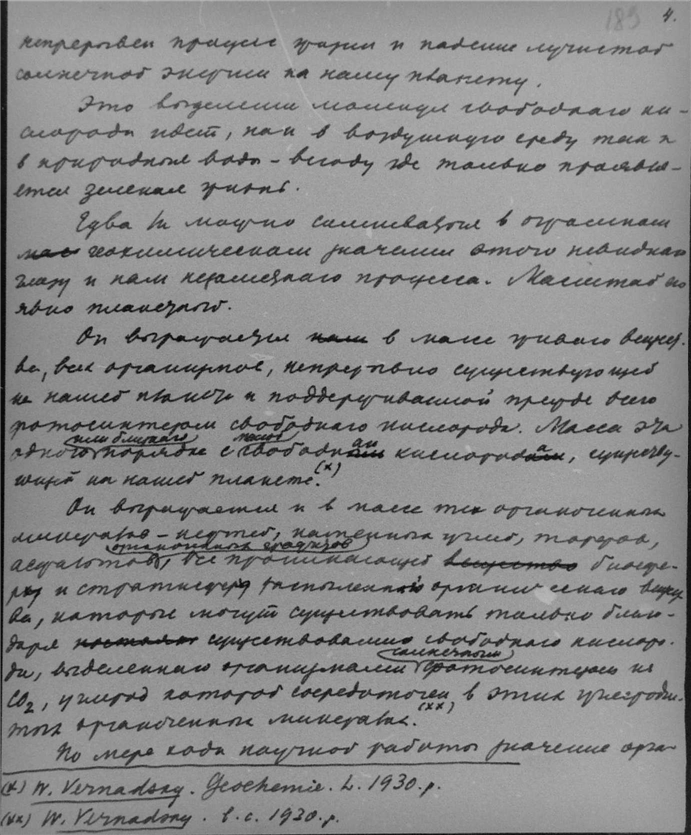 189 4.
непрерывен процесс жизни и падение лучистой
солнечной энергии на нашу планету.
Это выделение молекул свободного ки-
слорода идет, как в воздушную среду так и
в природные воды - всюду где только проявля-
ется зеленая жизнь.
Едва ли можно сомневаться в огромном
геохимическом значении этого невидного
глазу и нам незаметного процесса. Масштаб его
явно планетный.
Он выражается в массе живого вещест-
ва, всех организмов, непрерывно существующей
на нашей планете и поддерживаемой прежде всего
фотосинтезом свободного кислорода. Масса эта
одного или близкого порядка с массой свободного кислорода, существу-
ющей на нашей планете.(x)
Он выражается и в массе тех органогенных
минералов - нефтей, каменных углей, торфов,
асфальтов, органогенных, все проникающей биосфе-
ру и стратисферу распыленной органического вещест
ва, которые могут существовать только благо-
даря существованию свободного кислоро-
да, выделенного организмами солнечным фотосинтезом из
CO2, углерод которой сосредоточен в этих углероди-
стых органогенных минералах.(xx)
По мере хода научной работы значение орга-
(x) W. Vernadsky. Geochemie. L. 1930. p.
(xx) W. Vernadsky. l. c. 1930. p.